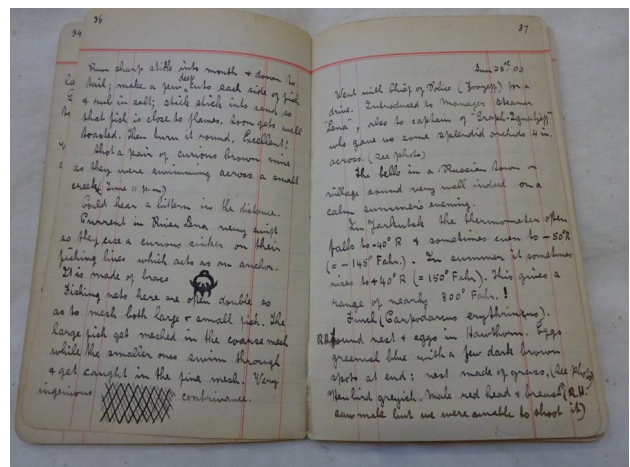 36
34
Run sharp stick into mouth & down to
tail; make a few deep cuts each side of fish
& rub in salt; stick stick into sand so
that fish is close to flames. Soon gets well
toasted. Then turn it round. Excellent!
Shot a pair of curious brown mice
as they were swimming across a small
creek (Time 11 p.m.)
Could hear a bittern in the distance.
Current in River Lena very swift
so they use a curious sinker on their
fishing lines which acts as an anchor.
It is made of brass
Fishing nets here are often double so
as to mesh both large & small fish. The
large fish get meshed in the coarse mesh
while the smaller ones swim through
& get caught in the fine mesh. Very
ingenious contrivance.
37
28th 03
Went with Chief of Police for a
drive. Introduced to Manager Steamer
"Lena", also to captain of "Graph-Ignatieff"
who gave us some splendid orchids 4 in.
across. (See photo)
The bells in a Russian town or
village sound very well indeed on a
calm summer's evening.
In Jarkutsk the thermometer often
falls to -40° R & sometimes even to -50° R
(= -145° Fahr.). In summer it sometimes
rises to +40° R (= 150° Fahr). This gives a
range of nearly 300° Fahr. !
Finch (Carpodacus erythrinus).
R.H. found nest & eggs in Hawthorn. Eggs
greenish blue with a few dark brown
spots at end; nest made of grass. (See photo)
Hen bird greyish. Male red head & breast (R.H.
saw male but we were unable to shoot it)